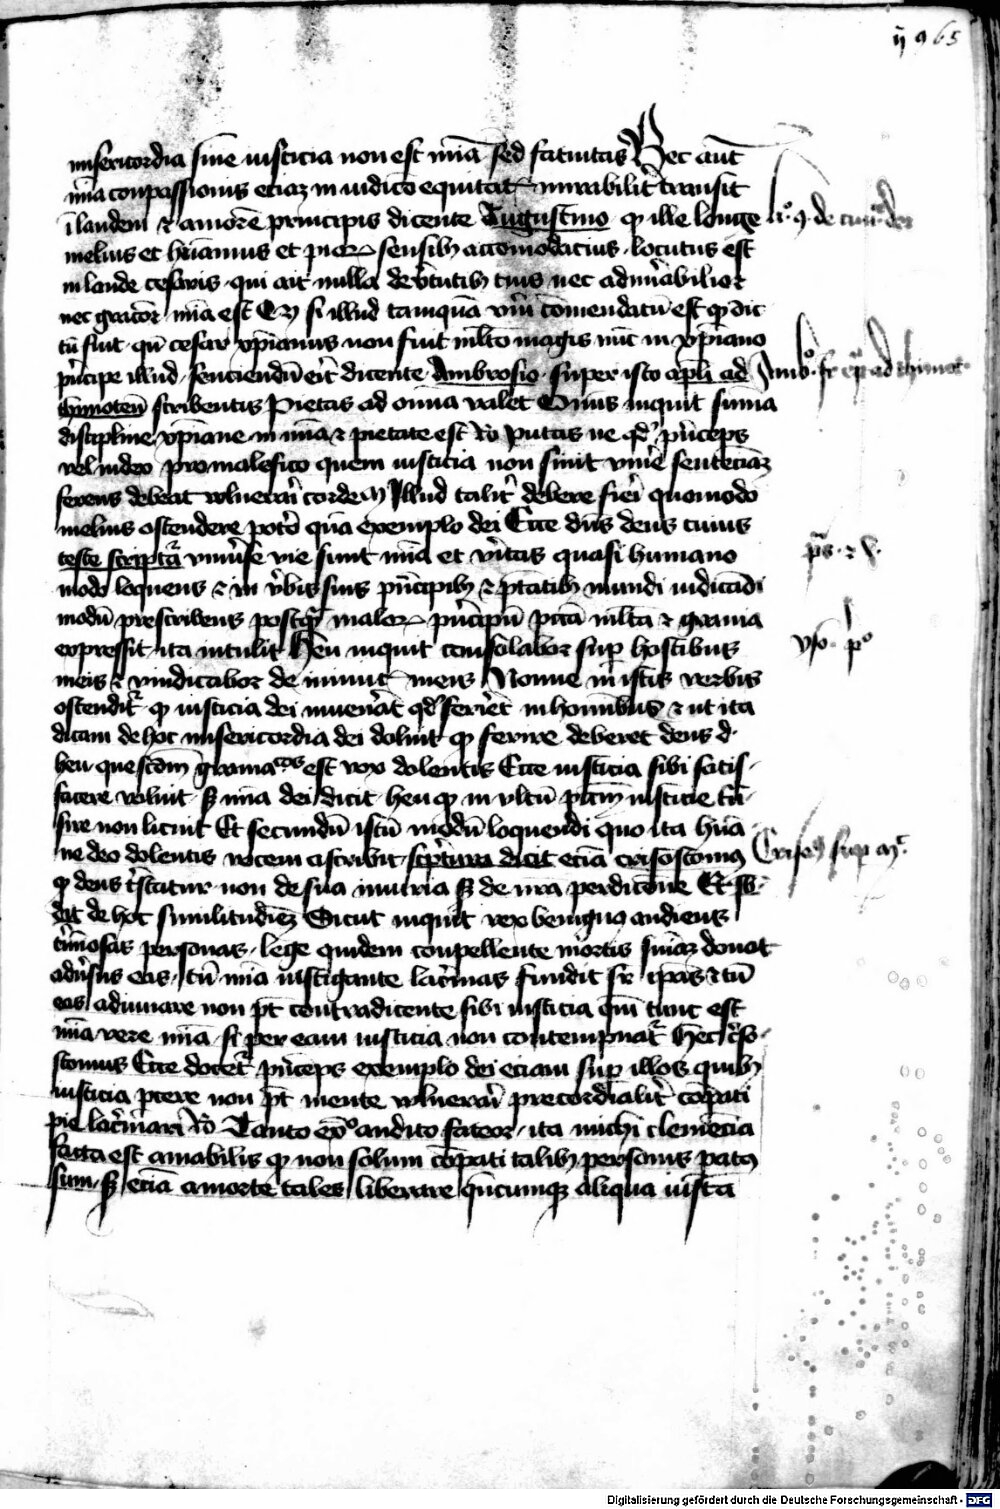 ij 9 65
misericordia sine iusticia non est mīa sed fatuitas Hec aūt
mīa conpassionis eciaz in iudice equitat mirabilit transit
ī laudem & amorē principis dicente Augustino qp ille longe
li° 9 de ciuit dei
melius et hūanius et pior sensibꝫ accomodacius locutus est
in laude cesaris qui ait nulla de v̄tutibꝫ tuis nec admīabilior
nec gracior mīa est Et si illud tamquā comendatū est dic
tū fuit cesar xp̄ianus non fuit mlto magis nūc in xp̄iano
p̄ncipe illud senciendū erit dicente Ambrosio super isto apl̄i ad
Amb° sr ep̄l ad thimot
thimoteū scribentis Pietas ad omnia valet Omnis inquit sūma
discipline xp̄iane in mīa & pietate est Ro Putas ne qd p̄nceps
vel iudex pro malefico quem iusticia non sinit viuē sentēciaz
ferens debeat wlnerari corde Illud talit debere fieri quomodo
melius ostendere potero quā exemplo dei Ecce dn̄s deus cuius
teste scriptā vniūse vie sunt mīa et v̄itas quasi humano
p̄s & v
modo loquens & in v̄bis suis p̄ncipibꝫ & p̄tatibꝫ mundi iudicādi
modū prescribens postqā malor p̄ncipū p̄ctā multa & grauia
expressit ita intulit Heu inquit consolabor sup hostibus
ysa p°
meis & vindicabor de inimic meis Nonne in istis verbis
ostendit qp iusticia dei inuenāt qd feriret in hominibus & ut ita
dicam de hoc misericordia dei doluit qp ferire deberet deus d
heu que scdm gramacos est vox dolentis Ecce iusticia sibi satis
facere voluit sꝫ mīa dei dicit heu qp in vltū p̄ctm̄ iusticie
sire non licuit Et secundū istū modū loquendi quo ita hūa
ne deo dolentis vocem ascribit scptura dicit eciā crisostomus
Crisos sup m̄
qp deus t̄statur non de sua iniuria sꝫ de nr̄a perdicōne Et sb
dit de hoc similitudiēz Sicut inquit rex benignus audiens
personas lege quidem conpellente mortis sniaz donat
adūsus eas tn̄ mīa instigante lacrimas fundit sr ipas & tn̄
eas adiuuare non pt̄ contradicente sibi iusticia tunc est
mīa vere mīa si per eam iusticia non contempnat Hec criso
stomus Ecce docet p̄nceps exemplo dei eciam sup illos quibꝫ
iusticia pcere non pt̄ mente wlnerari precordialit conpati
pie lacrimari Ro Tanto ex° audito fateor ita michi clemēcia
facta est amabilis qp non solum conpati talibꝫ personis patꝰ
sum sꝫ eciā a morte tales liberare qn̄cumqꝫ aliqua iusta
Digitalisierung gefördert durch die Deutsche Forschungsgemeinschaft - DFG